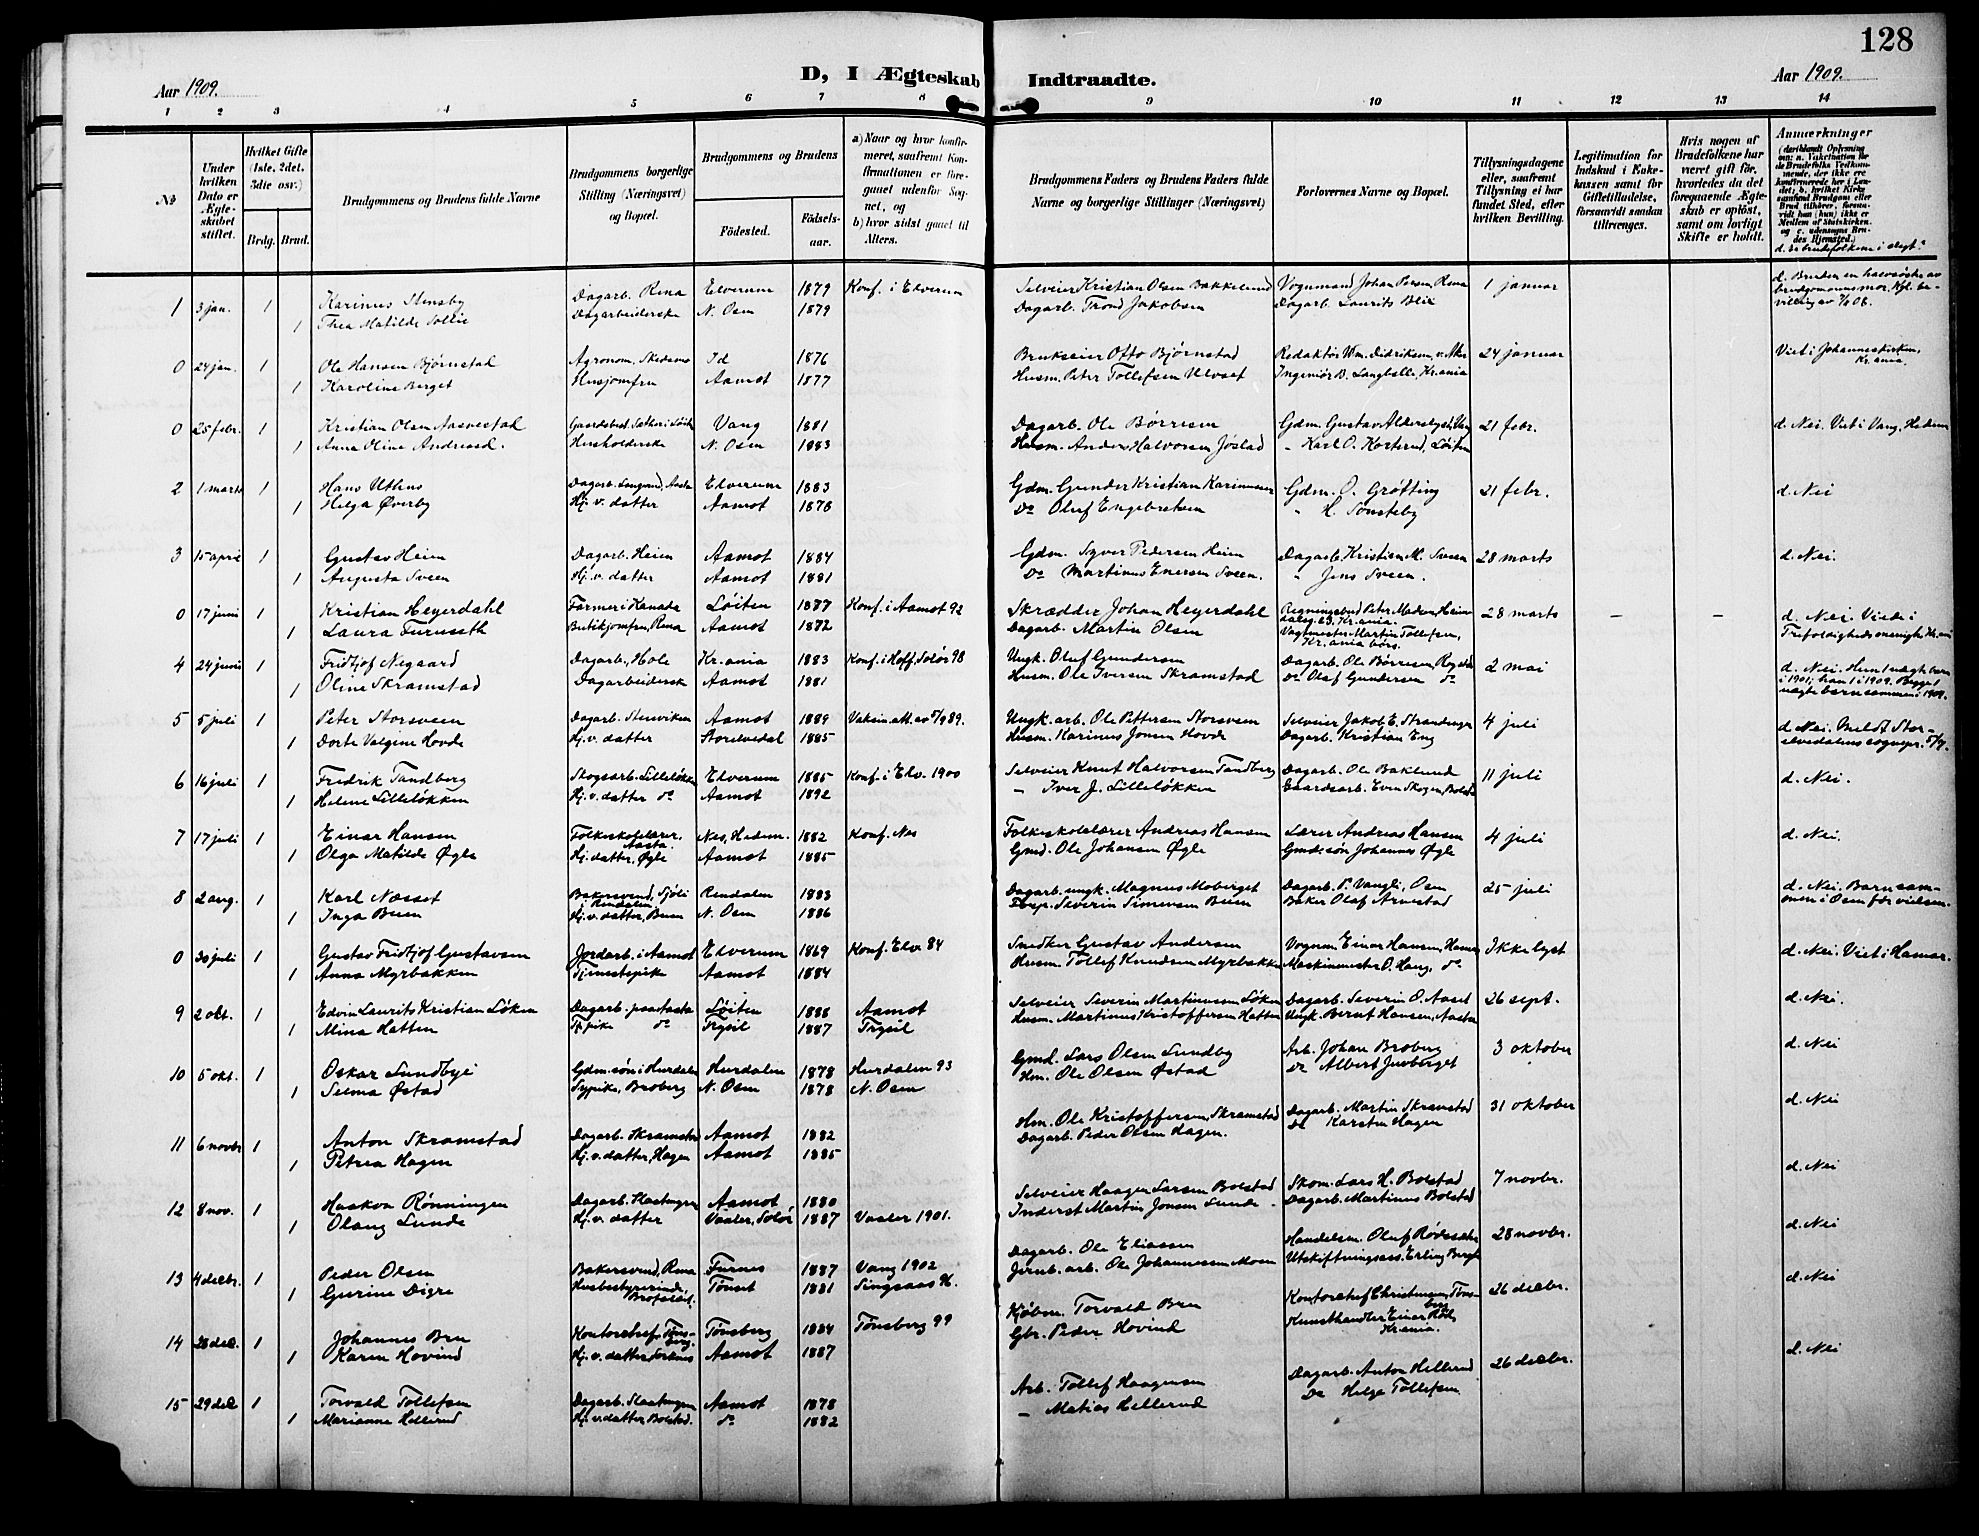 128
D, I Ægteskab Indtraadte.
Aar 1909. Aar 1909.
1 2 3 4 5 6 7 8 9 10 11 12 13 14
№
Under hvilken Dato er Ægteskabet stiftet.
Hvilket Gifte (1ste, 2det, 3die osv.)
Brdg. Brud.
Brudgommens og Brudens fulde Navne
Brudgommens borgerlige Stilling (Næringsvei) og Bopæl.
Brudgommens og Brudens
Fødested. Fødselsaar.
a) Naar og hvor konfirmeret, saafremt Konfirmationen er foregaaet udenfor Sognet, og
b) hvor sidst gaaet til Alters.
Brudgommens Faders og Brudens Faders fulde Navne og borgerlige Stillinger (Næringsvei)
Forlovernes Navne og Bopæl.
Tillysningsdagene eller, saafremt Tillysning ei har fundet Sted, efter hvilken Bevilling.
Legitimation for Indskud i Enkekassen samt for Giftetilladelse, forsaavidt saadan tiltrænges.
Hvis nogen af Brudefolkene har været gift før, hvorledes da det foregaaende Ægteskab er opløst, samt om lovligt Skifte er holdt.
Anmærkninger
d. Er brudefolkene i slegt?
1 3 jan. 1 Karinus Stensby Dagarb. Rena Elverum 1879 Konf. i Elverum Selveier Kristian Olsen Bakkelund Vognmand Johan Persen, Rena 1 januar d. Bruden en halvsøster av brudgommens mor. Kgl. bevilling av
1 Thea Matilde Dagarbeiderske N. Osen 1879 Dagarb. Trond Jakobsen Dagarb. Laurits Blix
0 24 jan. 1 Ole Hansen Bjørnstad Agronom, Skedsmo Id 1876 Brukseier Otto Bjørnstad Redaktør Wm. Didriksen, v. Aker 24 januar Viet i Johanneskirken, Kr.ania
1 Karoline Berget Husjomfru Aamot 1877 Husm. Peter Tollefsen Ulvset Ingeniør B. Langballe, Kr.ania
0 25 febr. 1 Kristian Olsen Vang 1881 Dagarb. Ole Børresen Gdm. Gustav 21 febr. d. Nei. Viet i Vang, Hedem
1 Anna Oline Andreasd. Husholderske N. Osen 1883 Husm. Anders Halvorsen Jøstad " Karl O. Korterud, Løiten
2 1 marts 1 Hans Uthus Dagarb. Aasta Elverum 1883 Gdm. Gunder Kristian Karinusen Gdm. O. Grøtting 21 febr. d. Nei
1 Helga Øverby Hj. v. datter Aamot 1878 Do Oluf Engebretsen " H. Sønsteby
3 15 april 1 Gustav Heim Dagarb. Heim Aamot 1884 Gdm. Syver Pedersen Heim Dagarb. Kristian M. Sveen 28 marts d. Nei.
1 Augusta Sveen Hj. v. datter Aamot 1881 Do Martinus Enersen Sveen. " Jens Sveen.
0 17 juni 1 Kristian Heyerdahl Farmer i Kanada Løiten 1877 Konf. i Aamot 92 Skrædder Johan Heyerdahl Regningsbud Peter Madsen, Heimdalsg. Kr.ania. 28 marts – – d. Nei. Viede i Trefoldighedsmenighe Kr.ani
1 Laura Furuseth Butikjomfru, Rena Aamot 1872 Dagarb. Martin Olsen Vagtmester Martin Tollefsen, Kr.ania børs.
4 24 juni 1 Fridtjof Negaard Dagarb., Hole Kr.ania 1883 Konf. i Hoff, Solør 98 Ungk. Oluf Gundersen Dagarb. Ole Børresen, 2 mai d. Nei. Hun 1 uægte barn i 1901; han 1 i 1909. Begge 1 uægte barn sammen i 1909.
1 Oline Skramstad Dagarbeidersk Aamot 1881 Husm. Ole Iversen Skramstad Do Olaf Gundersen do
5 5 juli 1 Peter Storsveen Dagarb. Stenviken Aamot 1889 Vaksin. att. av 5/9 89. Ungk. arb. Ole Pettersen Storsveen Selveier Jakob E. Strandenge 4 juli d. Nei. Meldt Storelvedalens sognepr. 5/7.
1 Dorte Valgine Hovde Hj. v. datter Storelvedal 1885 Husm. Karinus Jonsen Hovde Dagarb. Kristian Eng
6 16 juli 1 Fredrik Tandberg Skogsarb. Lilleløkken Elverum 1885 Konf. i Elv. 1900 Selveier Knut Halvorsen Tandberg Dagarb. Ole Baklund 11 juli d. Nei.
1 Helene Lilleløkken Hj. v. datter do Aamot 1892 " Iver J. Lilleløkken Gaardsarb. Even Skogen, Bolstad
7 17 juli 1 Einar Hansen Folkeskolelærer, Aasta. Nes, Hedem. 1882 Konf. Nes Folkeskolelærer Andreas Hansen Lærer Andreas Hansen 4 juli d. Nei.
1 Olga Matilde Øgle Hj. datter, Øgle Aamot 1885 Gmd. Ole Johansen Øgle Gmd.søn Johannes Øgle
8 2 aug. 1 Karl Næsset Bakersvend, Sjøli i Rendalen Rendalen 1883 Dagarb. ungk. Magnus Moberget Dagarb. P. Vangli, Osen 25 juli d. Nei. Barn sammen i Osen før vielsen.
1 Inga Buen Hj. v. datter, Buen N. Osen 1886 Severin Simensen Buen Baker Olaf Arnestad
0 30 juli 1 Gustav Fridtjof Gustavsen Jordarb. i Aamot Elverum 1869 Konf. Elv. 84 Snedker Gustav Andersen Vognm. Einar Hansen, Hamar Ikke lyst d. Nei. Viet i Hamar.
1 Anna Myrbakken Tjenestepike Aamot 1884 Husm. Tollef Knudsen Myrbakke Maskinmester O. Haug, do
9 2 okt. 1 Edvin Laurits Kristian Løken Dagarb. paa Aasta Løiten 1888 Aamot Selveier Severin Martinusen Løken Dagarb. Severin O. Aaset 26 sept. d. Nei.
1 Mina Hatten Tj.pike do Trysil 1887 Trysil Husm. Martinus Kristoffersen Hatten Ungk. Bernt Hansen, Aasta
10 5 okt. 1 Oskar Sundbye Gdm.søn i Hurdalen Hurdalen 1878 Hurdalen 93 Gmd. Lars Olsen Sundby Arb. Johan Broberg 3 oktober d. Nei
1 Selma Østad Sypike, Broberg N. Osen 1878 N. Osen Hm. Ole Olsen Østad Do Albert Juvberget
11 6 novbr 1 Anton Skramstad Dagarb. Skramstad Aamot 1882 Hm. Ole Kristoffersen, Skramstad Dagarb. Martin Skramstad 31 oktober d. Nei
1 Petrea Hagen Hj. v. datter, Hagen Aamot 1885 Dagarb. Peder Olsen Hagen. Do Karsten Hagen
12 8 nov. 1 Haakon Rønningen Dagarb. Slaatmyren Aamot 1880 Selveier Haagen Larsen Bolstad Skom. Lars H. Bolstad 7 novbr. d. Nei
1 Olaug Lunde Hj. v. datter Vaaler, Solør 1887 Vaaler 1901. Inderst Martin Jonsen Lunde Dagarb. Martinus Bolstad
13 4 decbr. 1 Peder Olsen Bakersvend, Rena Furnes 1887 Vang 1902 Dagarb. Ole Eliassen Handelsm. Oluf Rødssæter 28 novbr. d. Nei
1 Gurine Digre Husbestyrerinde, Tønset 1881 Singsaas K. Jernb. arb. Ole Johannessen Moen Utskiftningsass. Erling Bergh
14 28 dec. 1 Johannes Bru Kontorchef, Tønsberg. Tønsberg 1884 Tønsberg 99 Kjøbm. Torvald Bru Kontorchef Christensen, Tønsberg 26 decbr. d. Nei
1 Karen Hovind Hj. v. datter Aamot 1887 Gbr. Peder Hovind Kunsthandler Einar Kr.ania.
15 29 dec 1 Torvald Tollefsen Dagarb. Slaatmyren Aamot 1878 Arb. Tollef Haagensen Dagarb. Anton Hellerud 26 decbr. d. Nei
1 Marianne Hellerud Hj. v. datter Bolstad. do 1882 " Matias Hellerud Do Helge Tollefsen